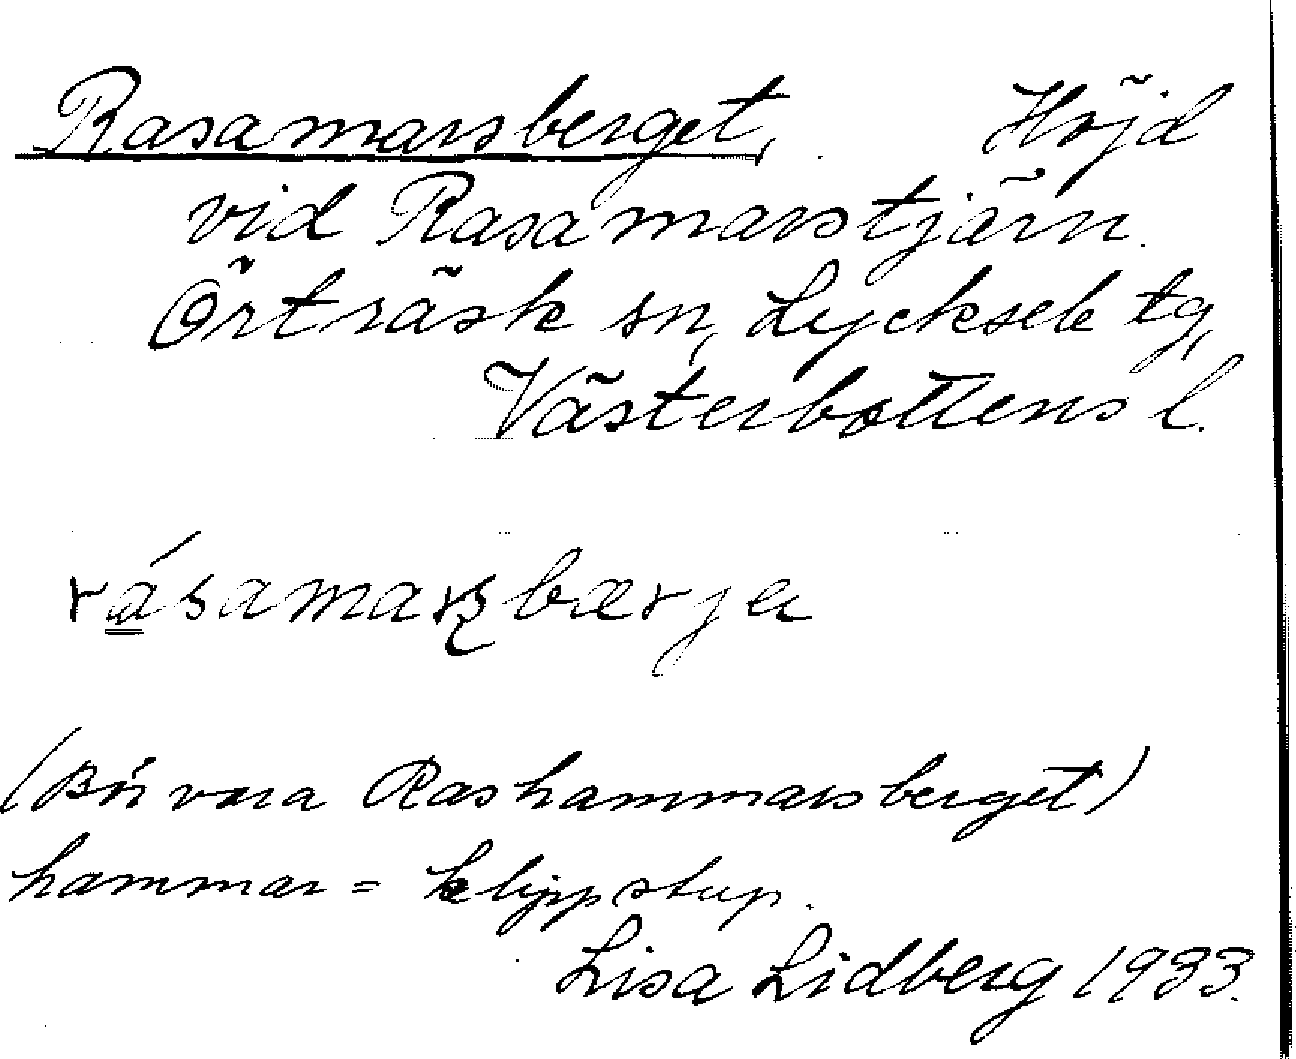 Rasamarsberget, Höjd
vid Rasamarstjärn.
Örträsk sn, Lycksele tg,
Västerbottens l.
rásamaʂbærjɐ
(Bör vara Rashammarsberget)
hammar = klippstup.
Lisa Lidberg 1933.